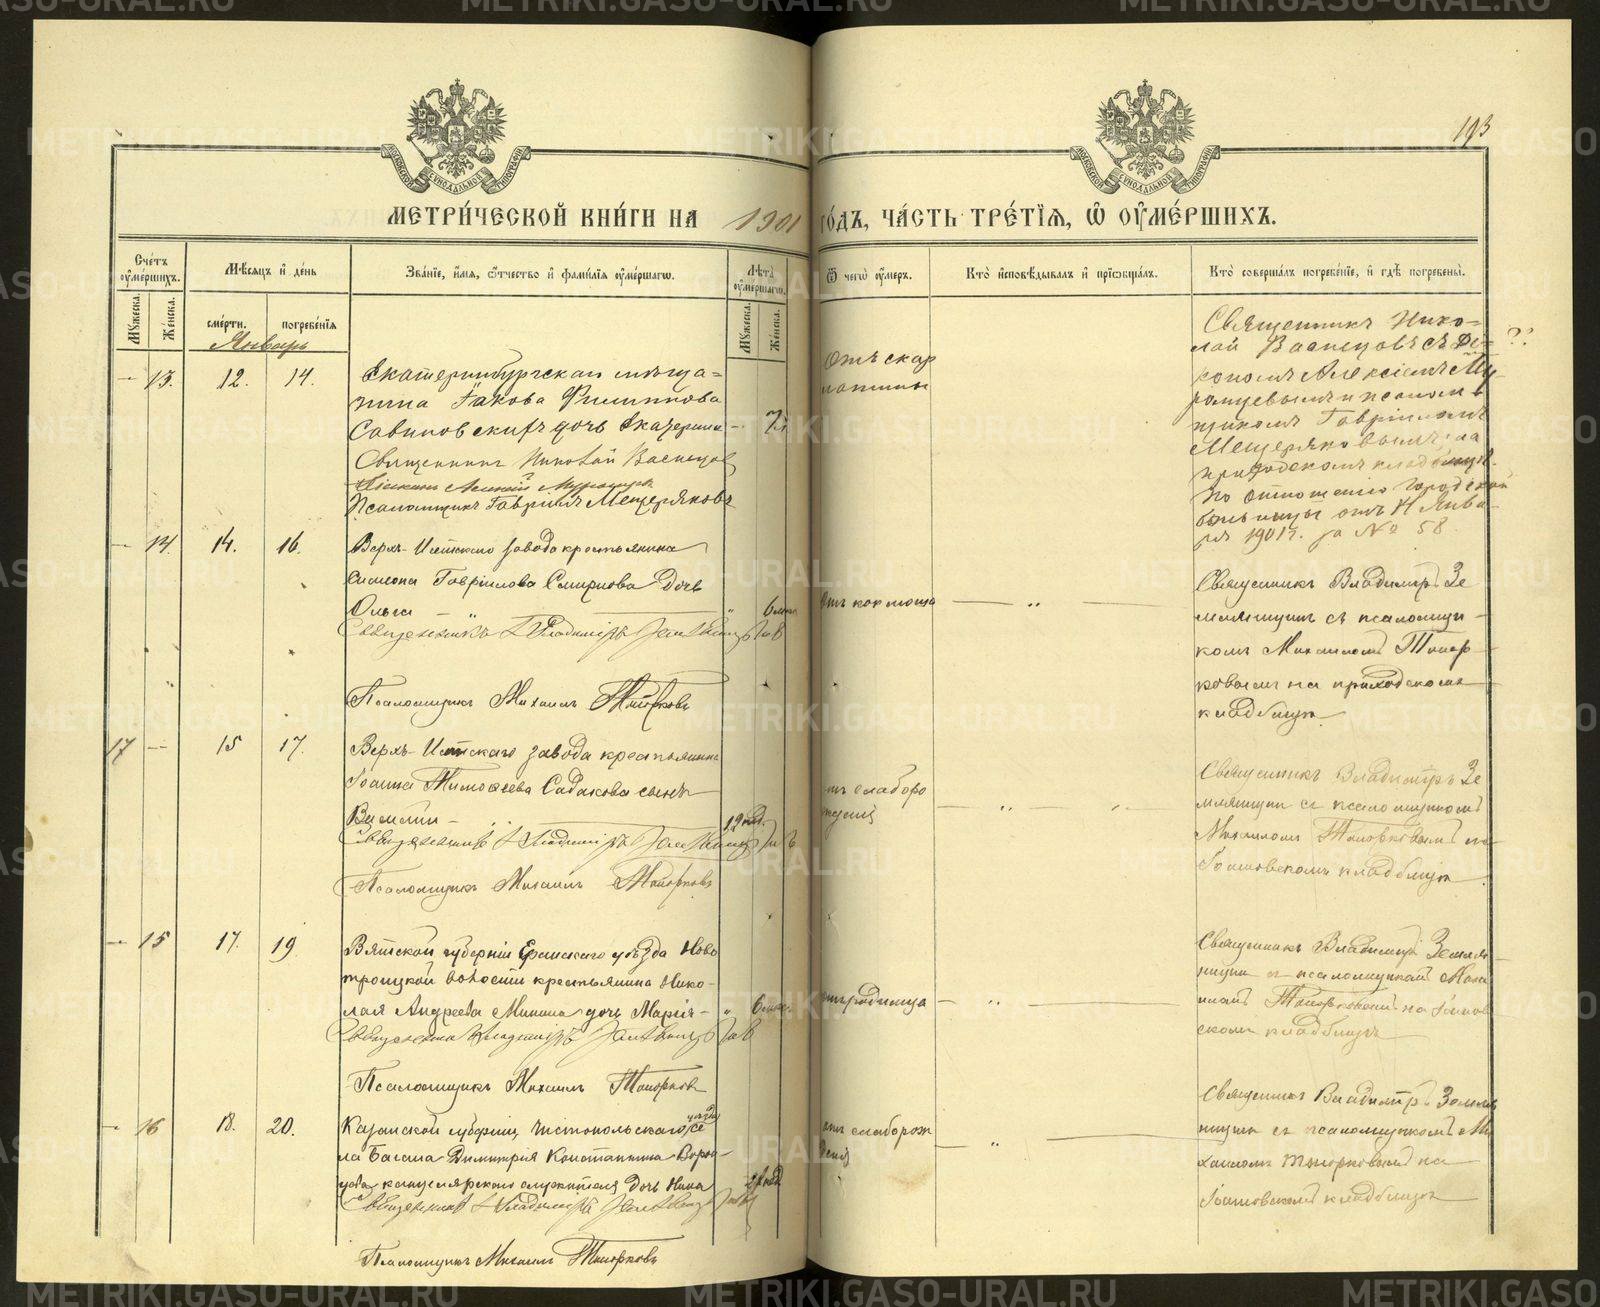 193
МЕТРИ́ЧЕСКОЙ КНИ́ГИ НА 1901 ГО́ДЪ, ЧА́СТЬ ТРЕ́ТІѦ, Ѿ ОУМЕ́РШИХЪ.
Сче́тъ оуме́ршихъ.
Мꙋ́жеска.
Же́нска.
Мѣ́сѧцъ и де́нь
сме́рти.
погребе́нїѧ
Зва́нїе, и́мѧ, ѻ́тчество и фами́лїѧ оуме́ршагѡ.
Лѣ́та оуме́ршагѡ.
Мꙋ́жеска.
Же́нска.
Ѿ чегѡ̀ оу́меръ.
Кто̀ и́сповѣ́дывалъ и прїѡбща́лъ.
Кто̀ соверша́лъ погребе́нїе, и гдѣ̀ погребены̀.
Январь
13. 12. 14.
Екатеринбургскаго мѣща=
нина Іакова Филиппова
Савиновскихъ дочь Екатерина
Священникъ Николай Васнецов
Псаломщикъ Гавріилъ Мещеряковъ
Отъ скар
латины
Священникъ Нико=
лай Васнецовъ съ Ді-
кономъ Алексіемъ Му-
ромцевымъ и псалом
щикомъ Гавріиломъ
Мещеряковымъ на
приходскомъ кладбищѣ.
По отношенію Городской
больницы отъ Янва-
ря 1901 г. за № 58
14. 14. 16.
Верхъ-Исетскаго завода крестьянина
Симеона Гавріилова Смирнова дочь
Ольга
Священникъ Владиміръ Земляницынъ
Псаломщикъ Михаилъ Топорковъ
отъ коклюша
Священникъ Владиміръ Зе
мляницынъ съ псаломщи-
комъ Михаиломъ Топор-
ковымъ на приходскомъ
кладбищѣ
17 15 17.
Верхъ-Исетскаго завода крестьянина
Іоанна Тимоѳеева Садакова сынъ
Священникъ Владиміръ Земляницынъ
Псаломщикъ Михаилъ Топорковъ
отъ слаборо
жденія
Священникъ Владиміръ Зе
мляницынъ съ псаломщикомъ
Михаиломъ Топорковымъ на
Іоанновскомъ кладбищѣ
15 17. 19.
Вятской губерніи уѣзда Ново
троицкой волости крестьянина Нико-
лая Андреева Минина дочь Марія
Священникъ Владиміръ Земляницынъ
Псаломщикъ Михаилъ Топорковъ
отъ родимца
Священникъ Владиміръ Земля-
ницынъ съ псаломщикомъ Миха
иломъ Топорковымъ на Іоаннов
скомъ кладбищѣ
16 18. 20.
Казанской губерніи Чистопольскаго уѣзда се
ла Багана Димитрія Константинова
канцелярскаго служителя дочь Нина
Священникъ Владиміръ Земляницынъ
Псаломщикъ Михаилъ Топорковъ
отъ слаборож
денія
Священникъ Владиміръ Земля
ницынъ съ псаломщикомъ Ми
хаиломъ Топорковымъ на
Іоанновскомъ кладбищѣ
METRIKI.GASO-URAL.RU